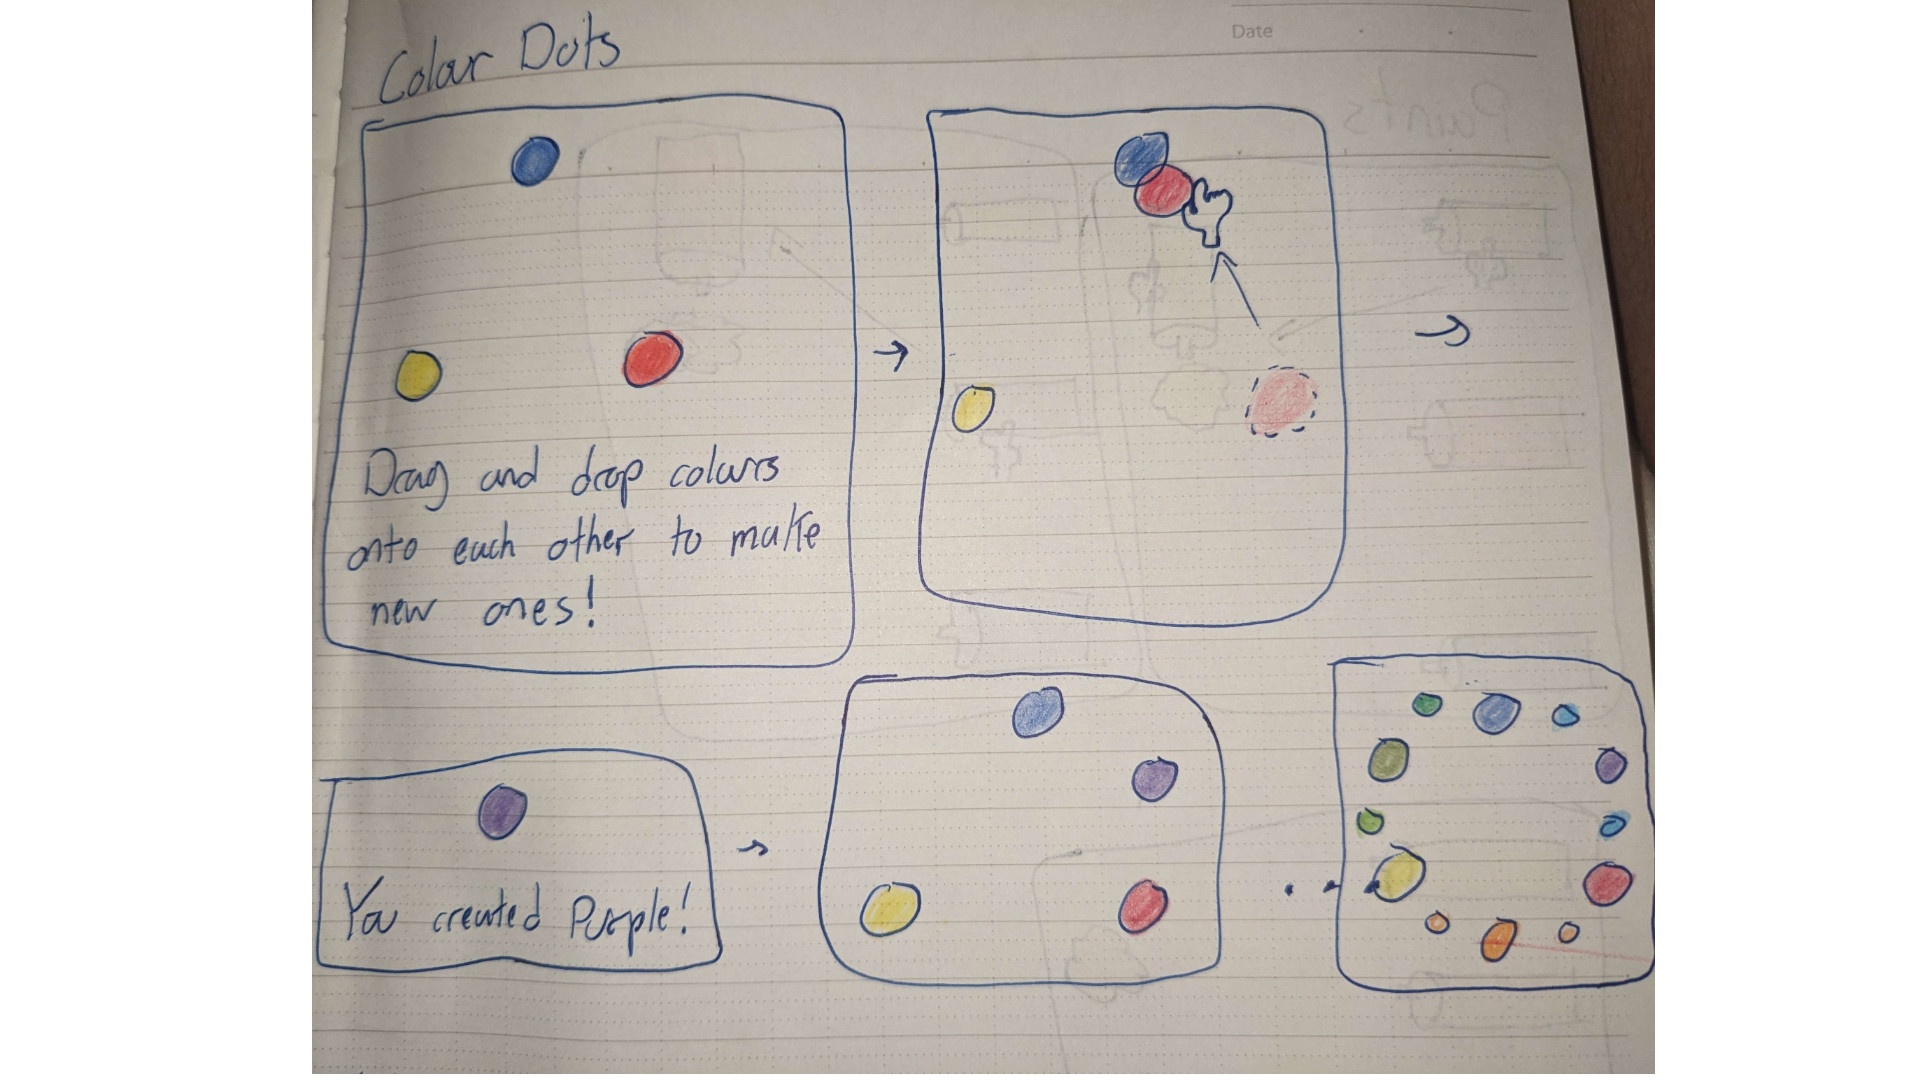 Colour Dots
Date
Paints
Drag and drop colours
onto each other to make
new ones!
You created Purple!